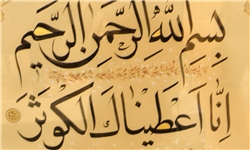 بِسْمِ اللهِ الرَّحْمنِ الرَّحيمِ
اِنّا اَعْطَيْناكَ الْكَوْثَرَ